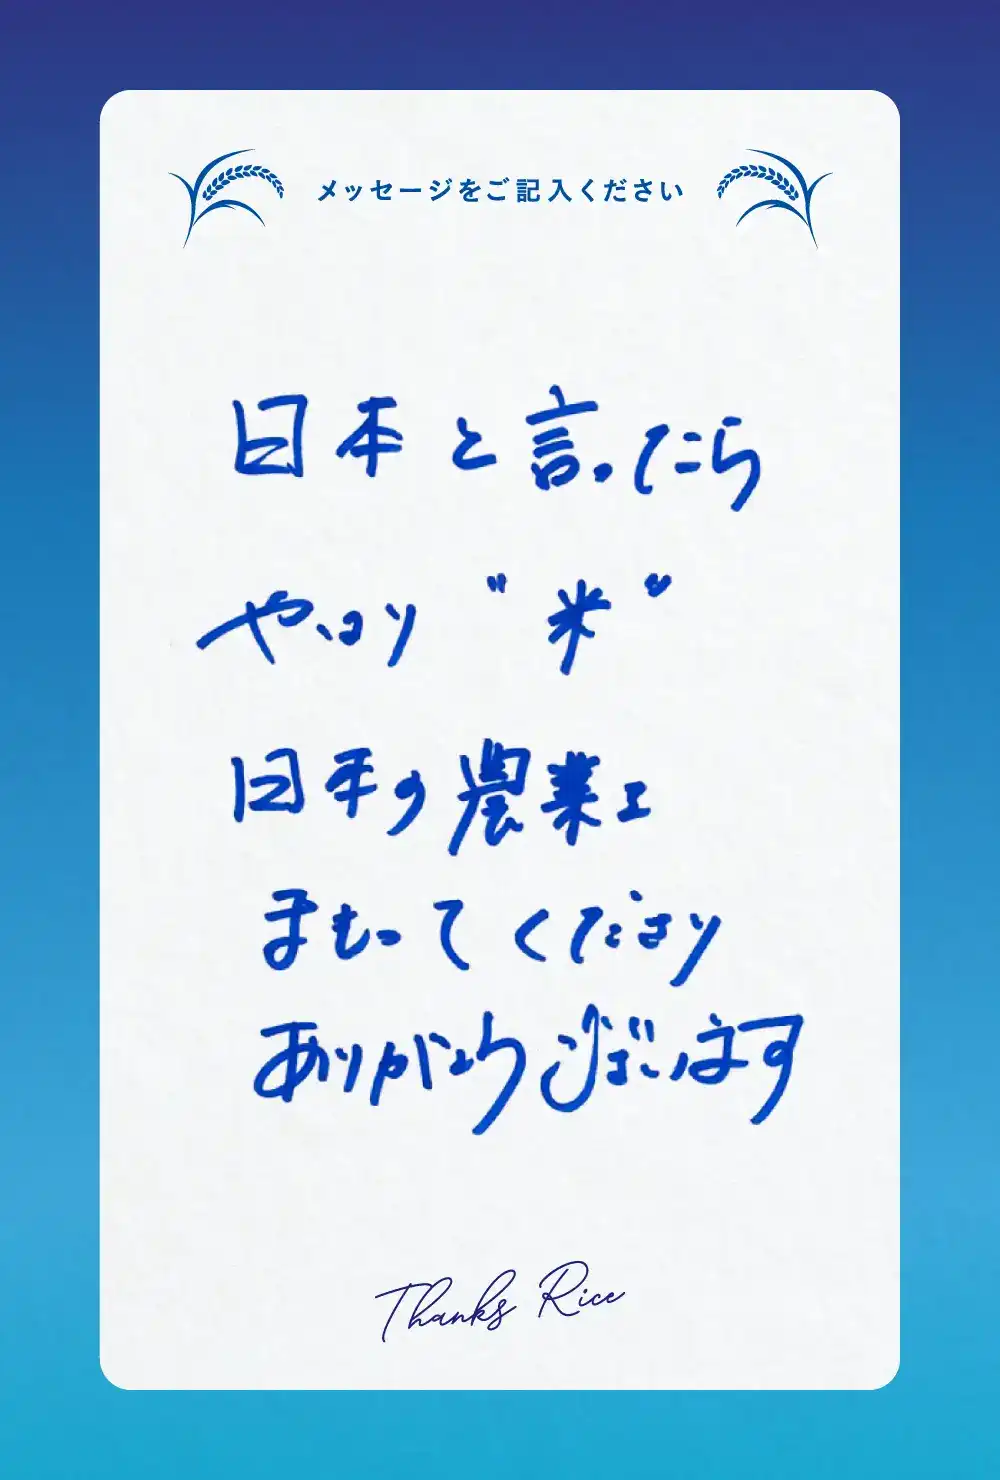 メッセージをご記入ください
日本と言ったら
やはり"米"
日本の農業を
まもってくださり
ありがとうございます
Thanks Rice